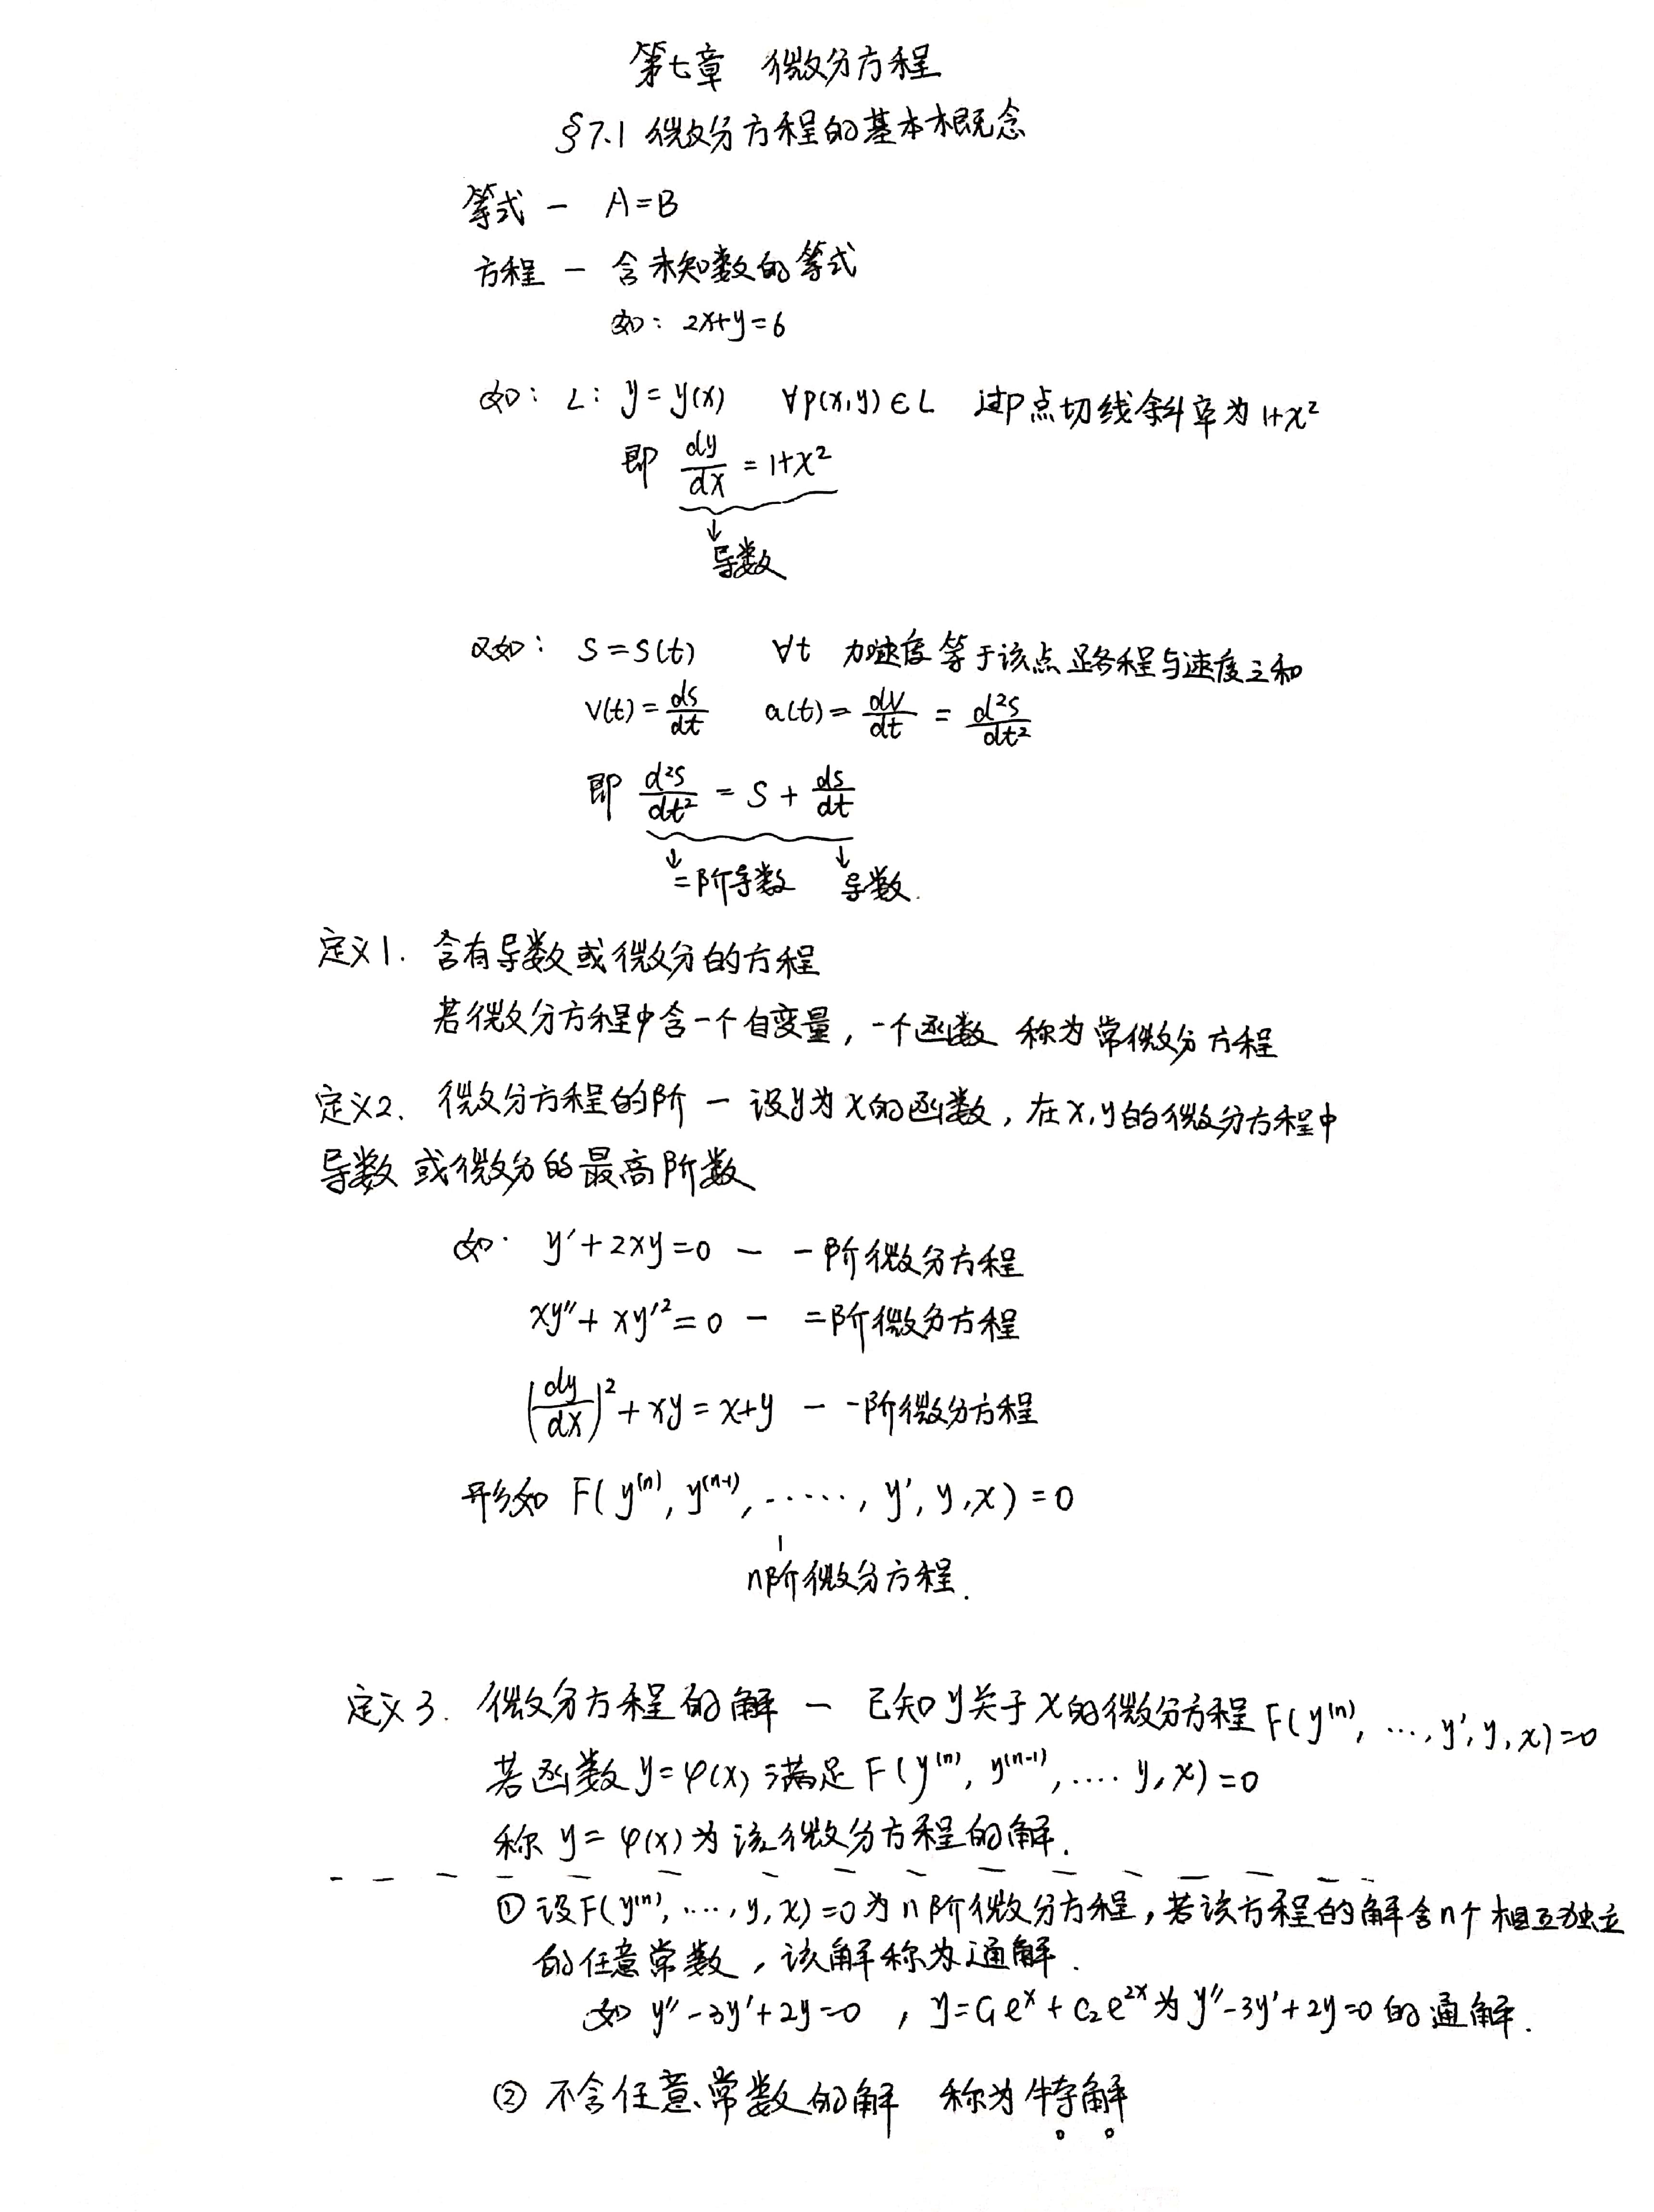 第七章 微分方程
§7.1 微分方程的基本概念
等式 — A=B
方程 — 含未知数的等式
如: 2x+y=6
如: L: y=y(x) ∀p(x,y)∈L 过P点切线斜率为1+x²
即 dy/dx = 1+x²
↓
导数
又如: S=S(t) ∀t 加速度等于该点路程与速度之和
v(t)=ds/dt a(t)=dv/dt = d²s/dt²
即 d²s/dt² = S + ds/dt
↓ ↓
二阶导数 导数.
定义1. 含有导数或微分的方程
若微分方程中含一个自变量, 一个函数 称为常微分方程
定义2. 微分方程的阶 — 设y为x的函数, 在x,y的微分方程中
导数或微分的最高阶数
如· y′+2xy=0 — 一阶微分方程
xy″+xy′²=0 — 二阶微分方程
(dy/dx)²+xy=x+y — 一阶微分方程
形如 F(y⁽ⁿ⁾, y⁽ⁿ⁻¹⁾, ······, y′, y, x)=0
n阶微分方程.
定义3. 微分方程的解 — 已知y关于x的微分方程F(y⁽ⁿ⁾, ···, y′, y, x)=0
若函数y=φ(x)满足F(y⁽ⁿ⁾, y⁽ⁿ⁻¹⁾, ···· y, x)=0
称 y=φ(x)为该微分方程的解.
① 设F(y⁽ⁿ⁾, ···, y, x)=0为n阶微分方程, 若该方程的解含n个相互独立
的任意常数, 该解称为通解.
如 y″-3y′+2y=0 , y=C₁eˣ+C₂e²ˣ为y″-3y′+2y=0的通解.
② 不含任意常数的解 称为特解